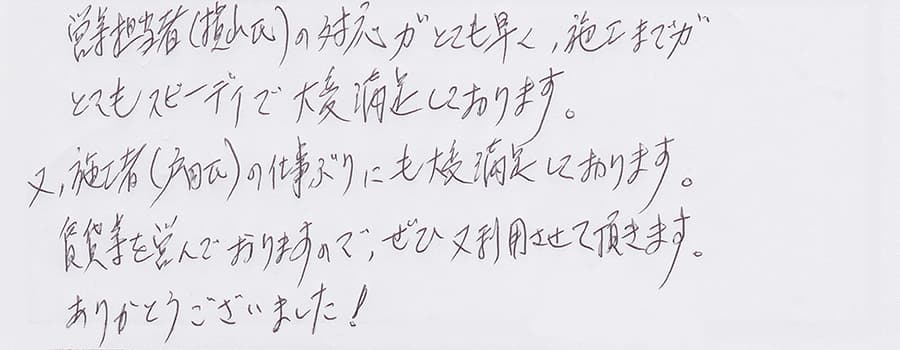 営業担当者(横山氏)の対応がとても早く、施工までが
とてもスピーディで大変満足しております。
又、施工者(戸田氏)の仕事ぶりにも大変満足しております。
賃貸業を営んでおりますので、ぜひ又利用させて頂きます。
ありがとうございました!